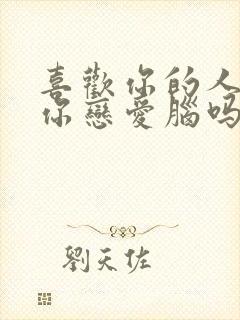 喜歡你的人
你戀愛腦嗎
劉天佐